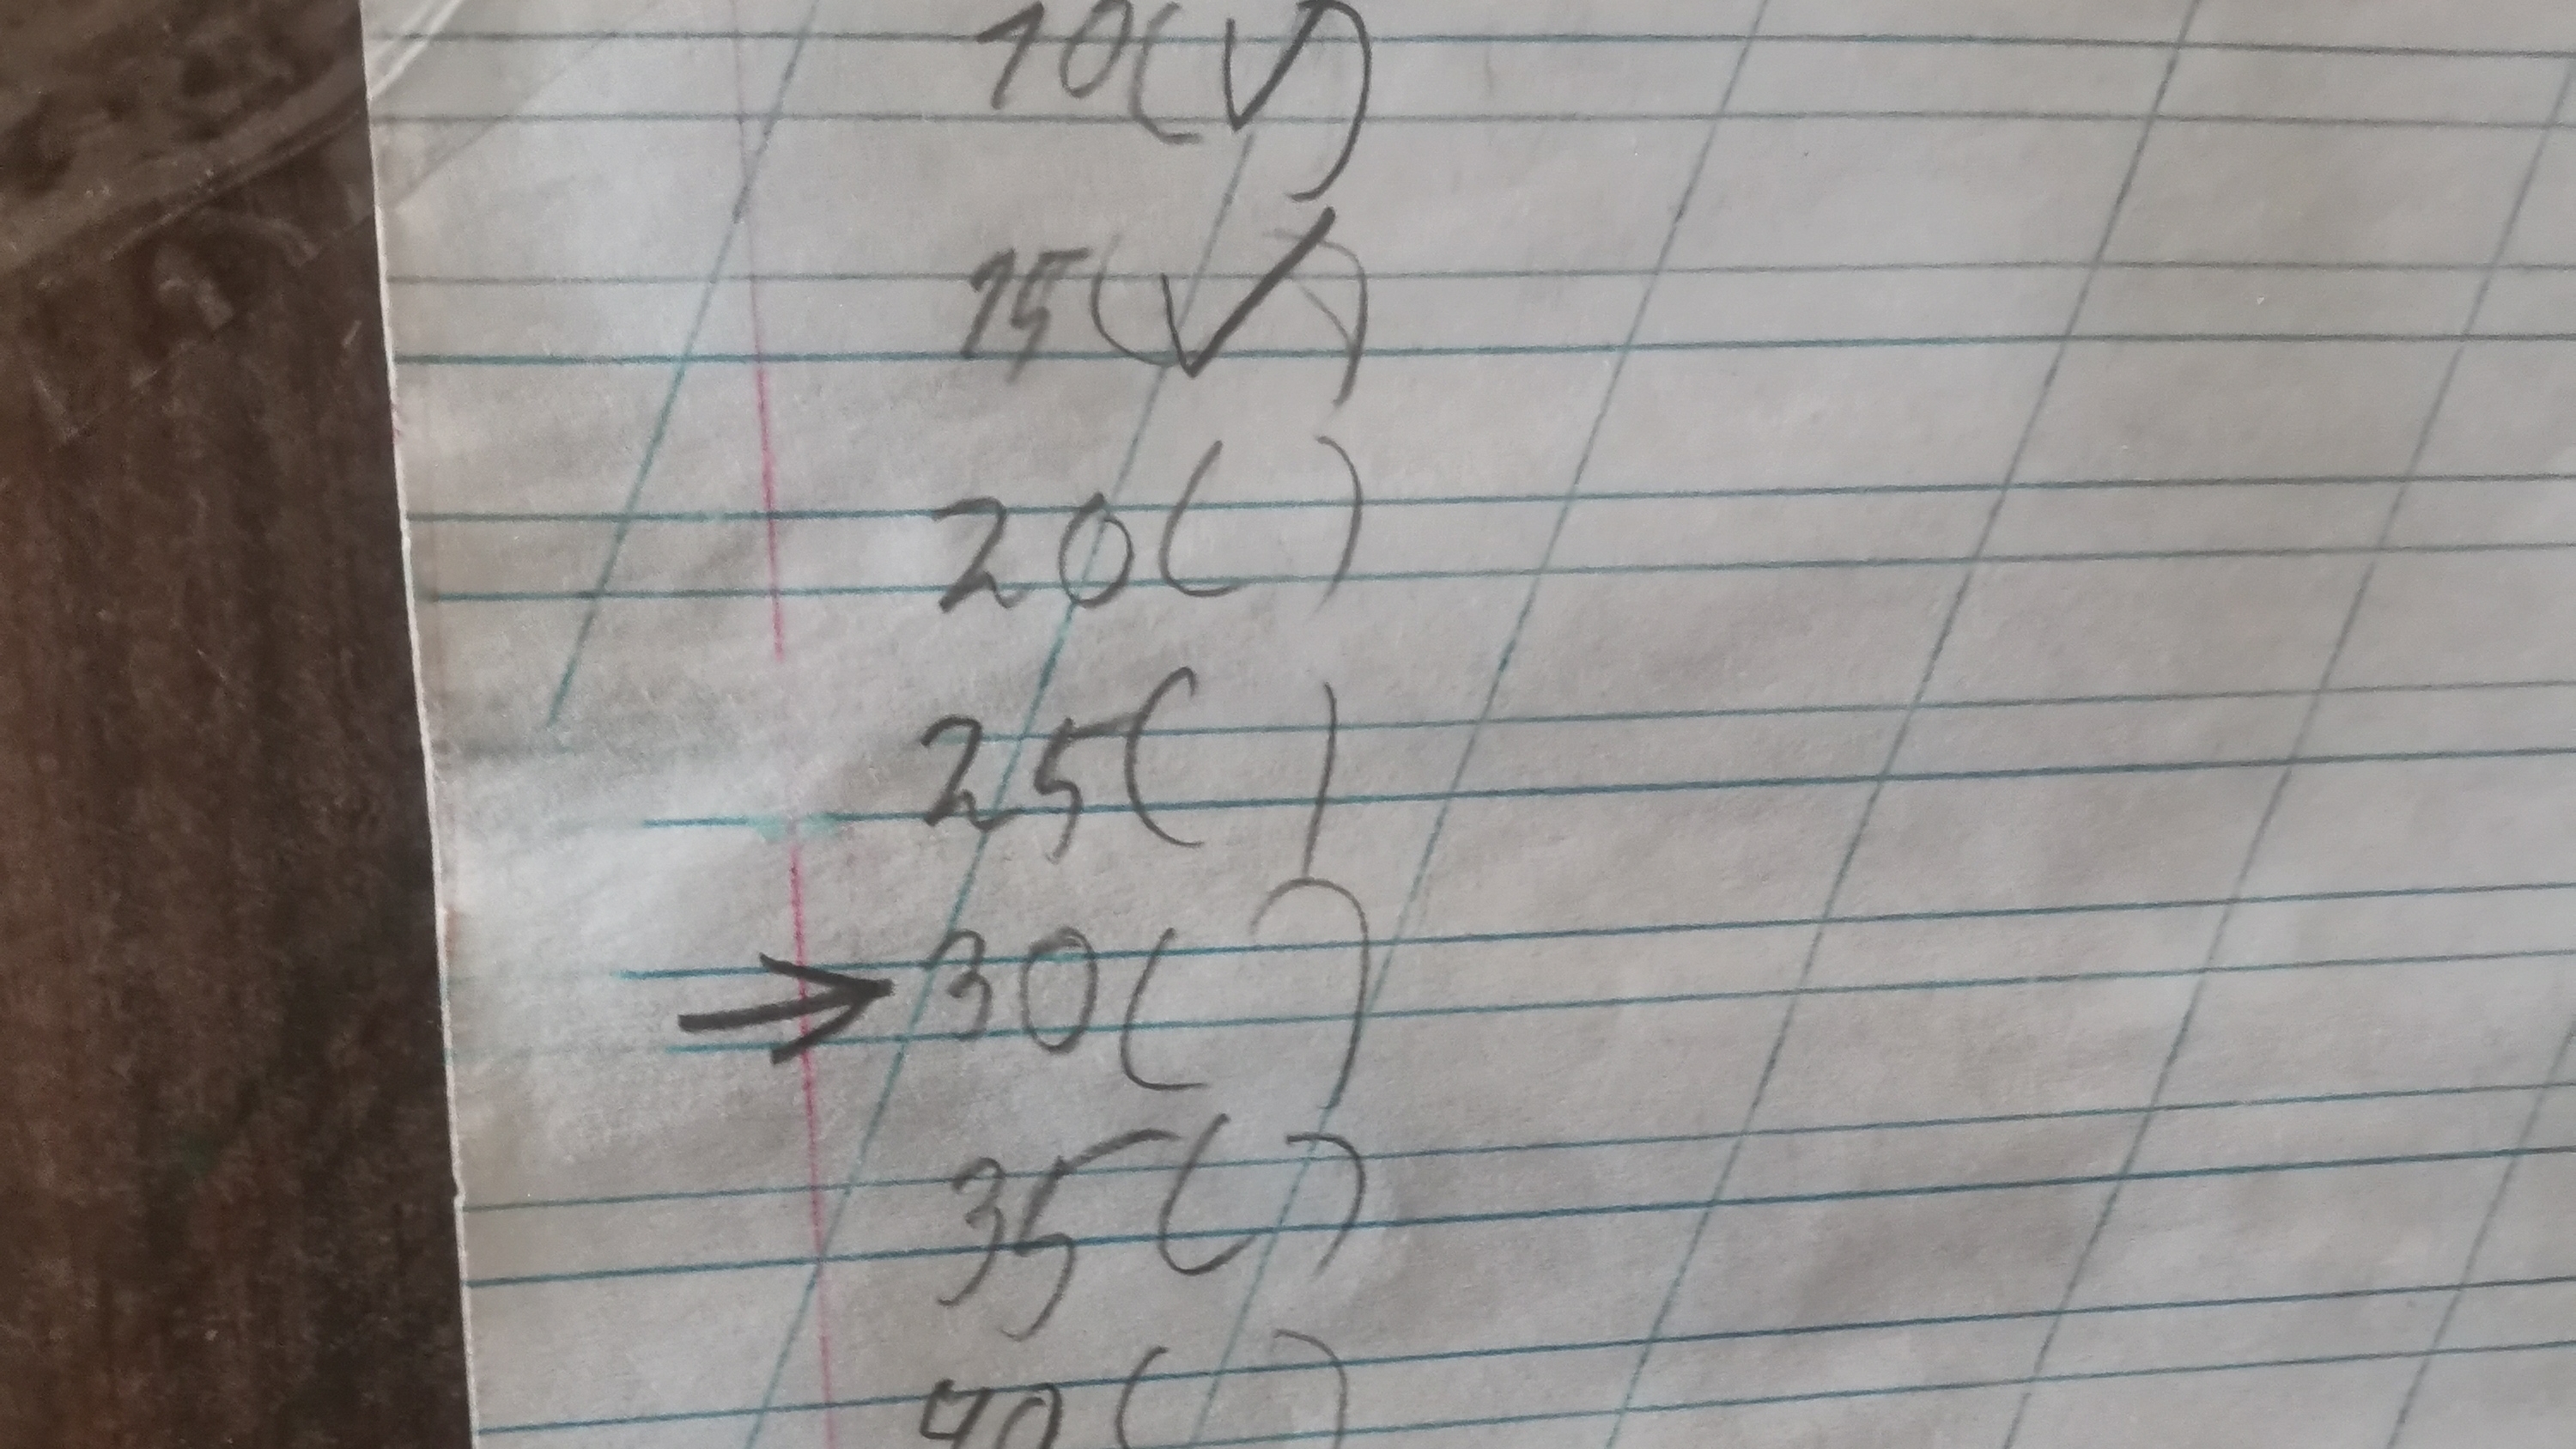 10(✓)
15(✓)
20( )
25( )
⇒30( )
35( )
40( )